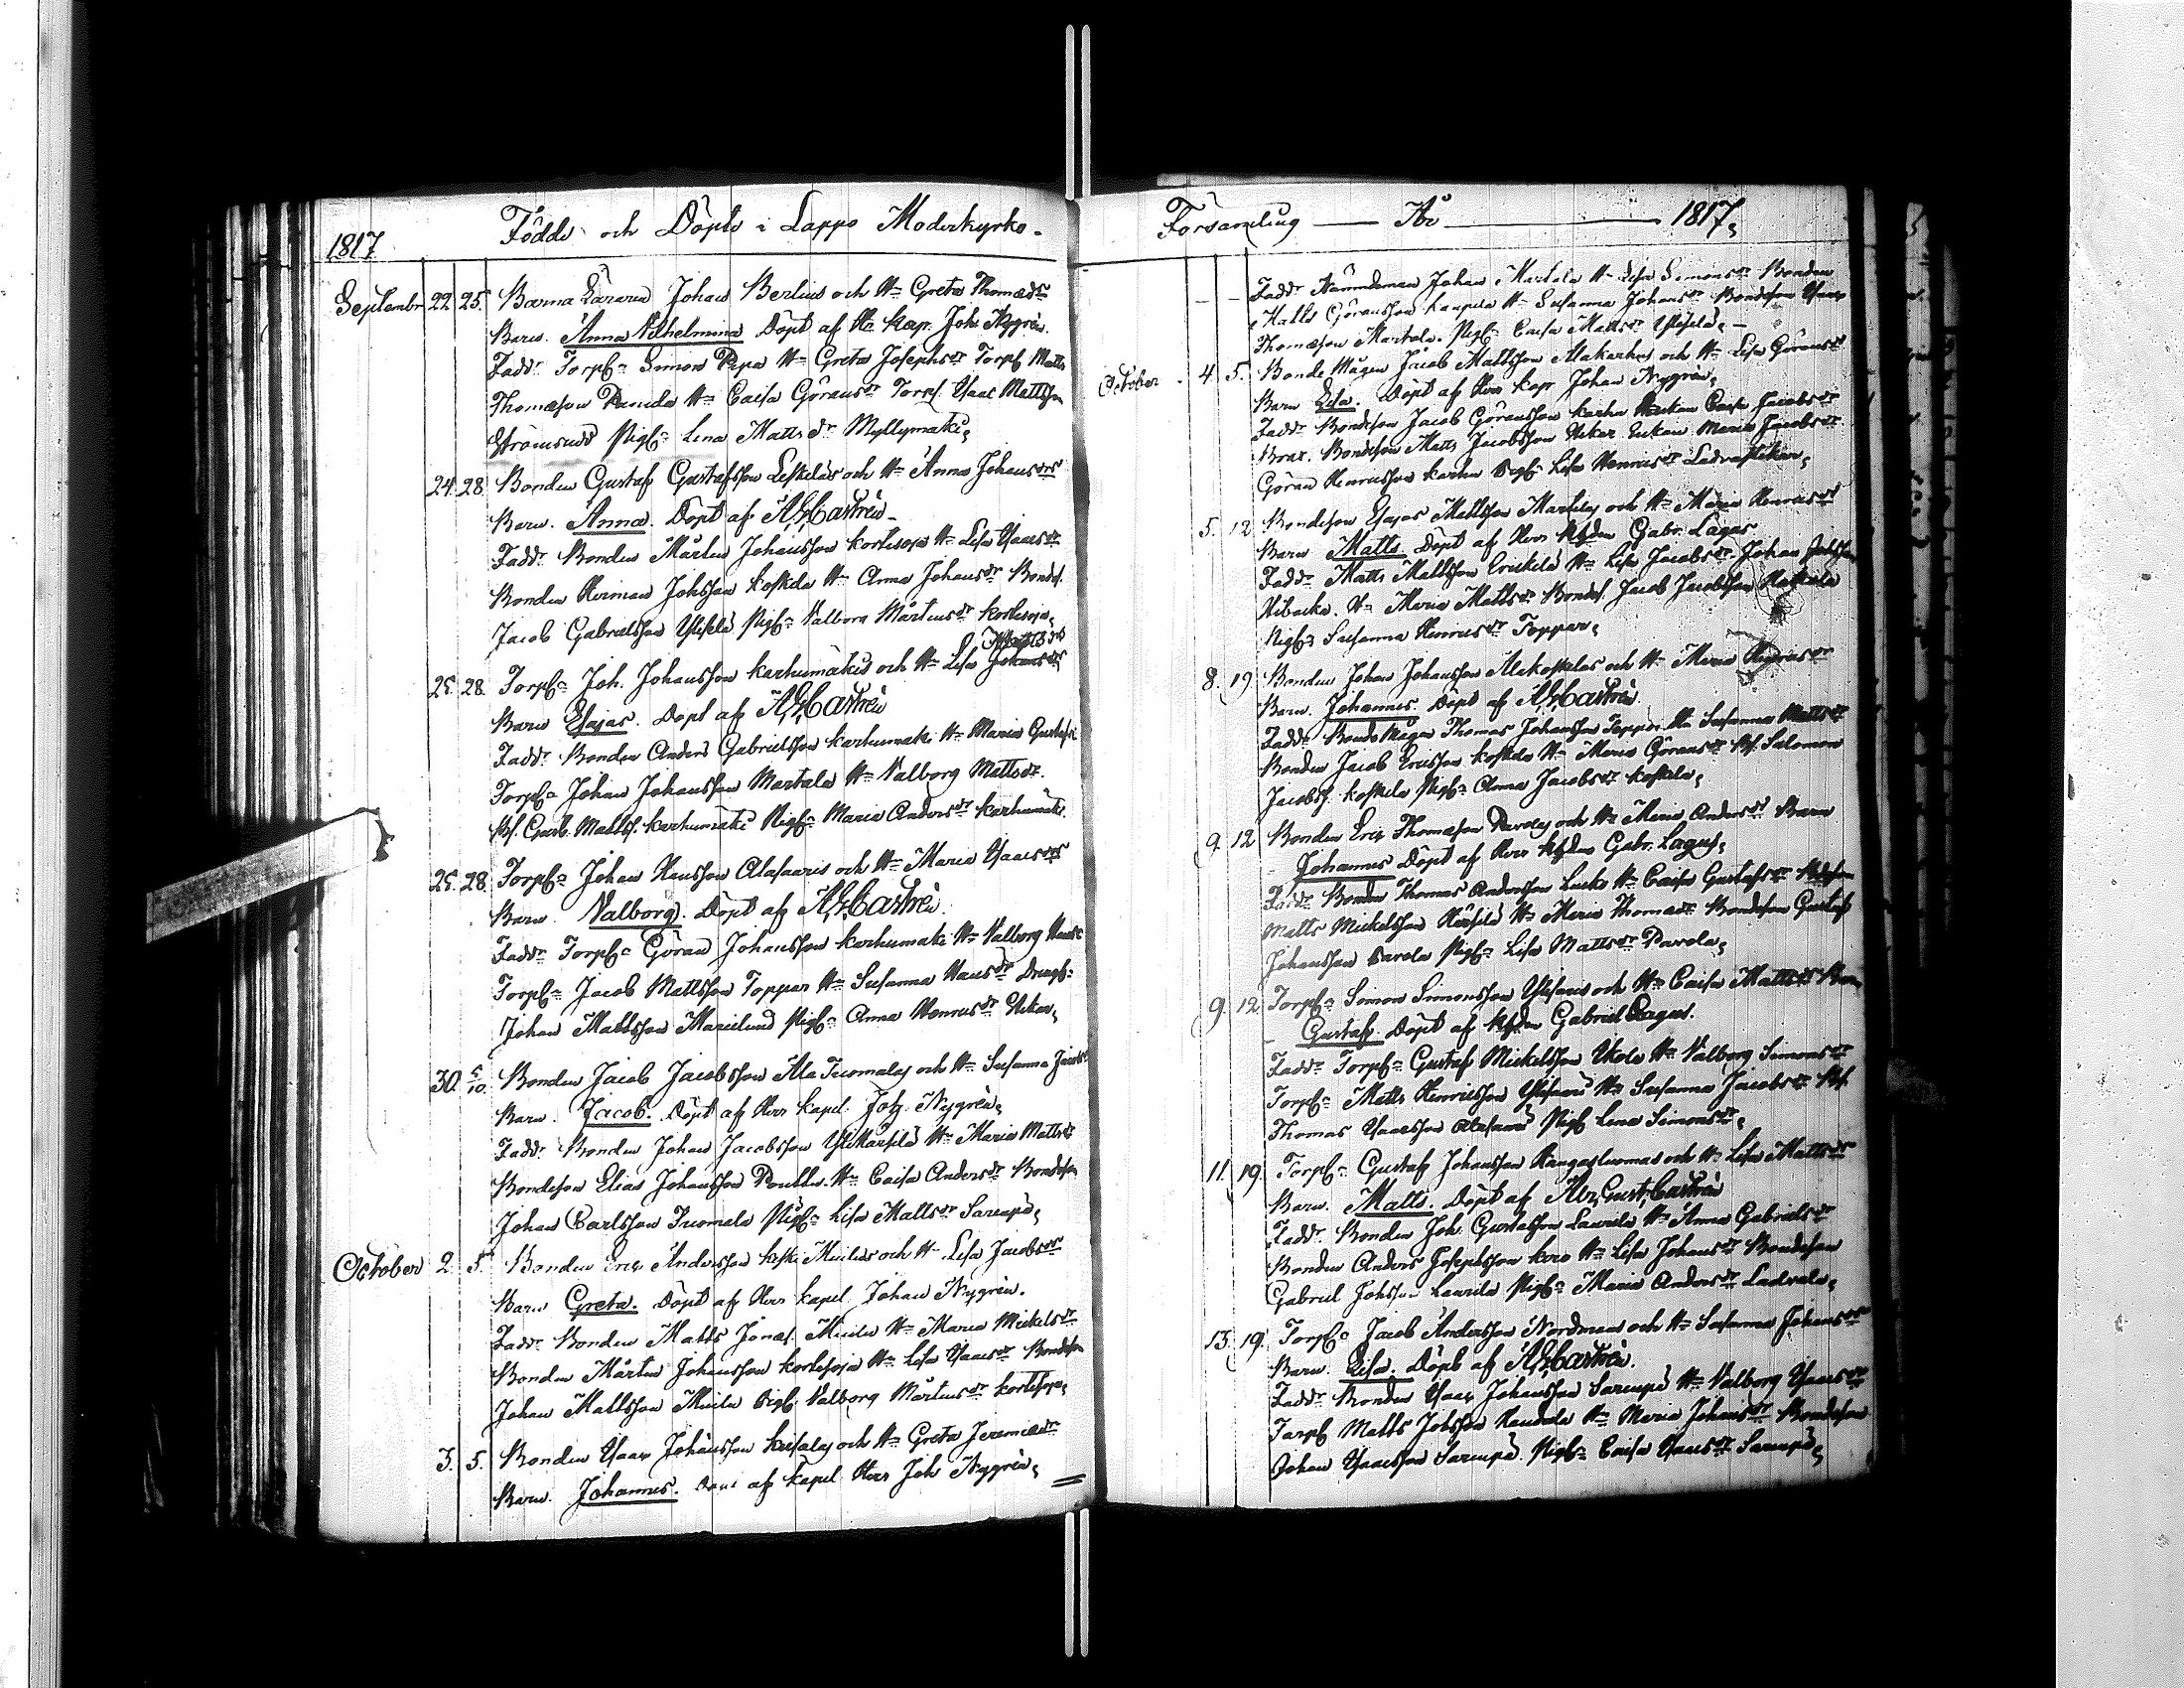 1817
Födde och Döpte i Lappo Moderkyrko-
Septembr 22. 25. Barna Läraren Johan Berlius och H: Greta Thomædr
Barn. Anna Wilhelmina Döpt af Hr Kap. Joh. Nygrén.
Fadd. Torp: Simon Pepa H: Greta Josephsdr Torp: Matts
Thomasson H: Caisa Göransdr Torp: Isaac Mattsson
Strömsund Pig: Lena Mattsdr Myllymäki,
24. 28. Bonden Gustaf Gustafsson Leskelas och H: Anna Johansdrs
Barn. Anna. Döpt af A.G. Castrén
Fadd. Bonden Mårten Johansson Kortesoja H: Lisa Isaacsdr
Bonden Herman Johsson Koskela H: Anna Johansdr Bonds.
Jacob Gabrielsson Ylisela Pig: Valborg Mårtensdr Kortesoja,
25. 28. Torp: Joh. Johansson Karhumäkis och H: Lisa Johansdrs Mattsdrs
Barn Esajas. Döpt af A.G. Castrén
Fadd. Bonden Anders Gabrielsson Karhumäki H: Maria Gustafsdr
Torp: Johan Johansson Martala H: Valborg Mattsdr.
Bs. Gust. Matts. Karhumäki Pig: Maria Andersdr Karhumäki.
25. 28. Torp: Johan Hansson Alasaaris och H: Maria Isaacsdrs
Barn. Valborg. Döpt af A.G. Castrén.
Fadd. Torp: Göran Johansson Karhumäki H: Valborg Hansdr
Torp: Jacob Mattsson Toppar H: Susanna Hansdr Dreng:
Johan Mattsson Marielund Pig: Anna Henricsdr Uckar,
30. 5/10. Bonden Jacob Jacobsson Ala Tuomalas och H: Susanna Jacobsdr
Barn. Jacob. Döpt af Herr Kapel. Joh. Nygrén,
Fadd. Bonden Johan Jacobsson Ylikarsila H: Maria Mattsdr
Bondeson Elias Johansson Poutu H: Caisa Andersdr Bondeson
Johan Carlsson Tuomela Pig: Lisa Mattsdr Sarenpä,
October 2. 5. Bonden Eric Andersson Keski Muilus och H: Lisa Jacobsdrs
Barn Greta. Döpt af Herr Kapel. Johan Nygrén.
Fadd. Bonden Matts Jonas. Muilu H: Maria Mickelsdr
Bonden Mårten Johansson Kortesoja H: Lisa Isaacsdr Bondeson
Johan Mattsson Muilu Pig: Valborg Mårtensdr Kortesoja,
3. 5. Bonden Isaac Johansson och H: Greta Jeremiædr
Barn. Johannes. Döpt af Kapel. Herr Joh. Nygrén,
Församling — År — 1817,
Fadd. Nämndeman Johan Martala H: Lisa Simonsdr Bonden
Matts Göransson Kaupila H: Susanna Johansdr Bondeson Isaac
Thomasson Martala. Pig: Caisa Mattsdr Ylisela,
October 4. 5. Bonde Mågen Jacob Mattsson Alakarhus och H: Lisa Göransdrs
Barn Lisa. Döpt af Herr Kapr Johan Nygrén,
Fadd. Bondeson Jacob Göransson Karhu Enkan Caisa Jacobsdr
Brax. Bondeson Matts Jacobsson Uckar Enkan Maria Jacobsdr
Göran Henricsson Karhu Pig: Lisa Henricsdr
5. 12 Bondeson Esajas Mattsson och H: Maria Henricsdrs
Barn Matts. Döpt af Herr Gabr. Lagus
Fadd. Matts Mattsson Erickilä H: Lisa Jacobsdr Johan Johsson
Hibacka. H: Maria Mattsdr Bonds. Jacob Jacobsson
Pig: Susanna Henricsdr Toppar,
8. 19 Bonden Johan Johansson Alakoskelas och H: Maria
Barn. Johannes. Döpt af A.G. Castrén.
Fadd. Bonde Mågen Thomas Johansson Toppar H: Susanna Mattsdr
Bonden Jacob Ericsson Koskela H: Maria Göransdr Bs. Salomon
Jacobs. Koskela Pig: Anna Jacobsdr Koskela,
9. 12 Bonden Eric Thomasson Pavolas och H: Maria Andersdrs Barn
Johannes Döpt af Herr Gabr. Lagus,
Fadd. Bonden Thomas Andersson Lucko H: Caisa Gustafsdr Bdeson
Matts Mickelsson H: Maria Thomædr Bondeson Gustaf
Johansson Pavola Pig: Lisa Mattsdr Pavola,
9. 12 Torp: Simon Simonsson Ylisaaris och H: Caisa Mattsdrs Barn
Gustaf. Döpt af Gabriel Lagus.
Fadd. Torp: Gustaf Mickelsson Ukola H: Valborg Simonsdr
Torp: Matts Henricsson Ylisaari H: Susanna Jacobsdr Bs.
Thomas Isaacsson Alasaari Pig: Lena Simonsdr,
11. 19. Torp: Gustaf Johansson Kangasluomas och H: Lisa Mattsdrs
Barn. Matts. Döpt af Abr. Gust. Castrén
Fadd. Bonden Joh. Gustafsson Laurila H: Anna Gabrielsdr
Bonden Anders Josephsson Kero H: Lisa Johansdr Bondeson
Gabriel Johsson Laurila Pig: Maria Andersdr Ladvala,
13. 19. Torp: Jacob Andersson Nordman och H: Susanna Johansdrs
Barn. Lisa. Döpt af A.G. Castrén.
Fadd. Bonden Isaac Johansson Sarenpä H: Valborg Isaacsdr
Torp: Matts Johsson Haudala H: Maria Johansdr Bondeson
Johan Isaacsson Sarenpä. Pig: Caisa Isaacsdr Sarenpä,